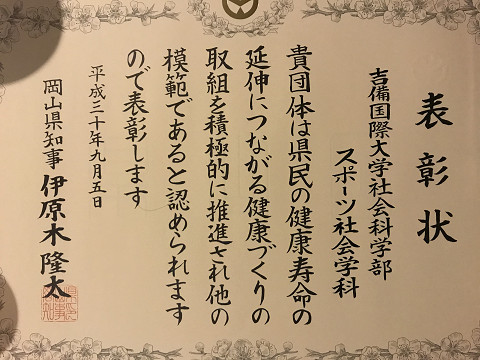 表彰状
吉備国際大学社会科学部
スポーツ社会学科
貴団体は県民の健康寿命の
延伸につながる健康づくりの
取組を積極的に推進され他の
模範であると認められます
ので表彰します
平成三十年九月五日
岡山県知事 伊原木隆太